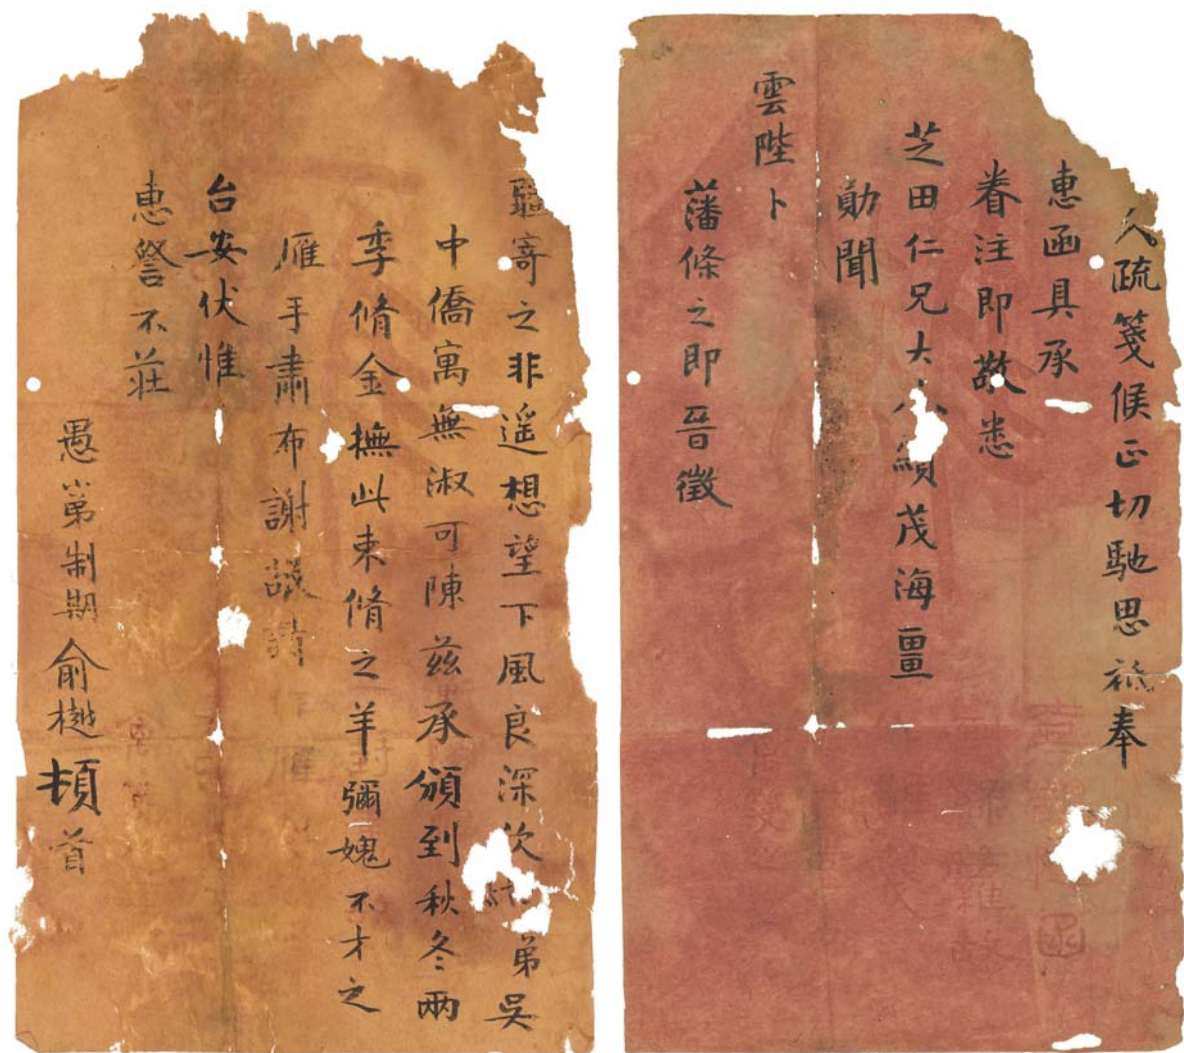 久疏箋候正切馳思祗奉
惠函具承
眷注即敬悉
芝田仁兄大人績茂海疆
勛聞
雲陛卜
藩條之即晉徵
疆寄之非遥想望下風良深欣弟吳
中僑寓無淑可陳兹承頒到秋冬兩
季脩金撫此束脩之羊彌媿不才之
雁手肅布謝敬請
台安伏惟
惠詧不莊
愚弟制期俞樾頓首